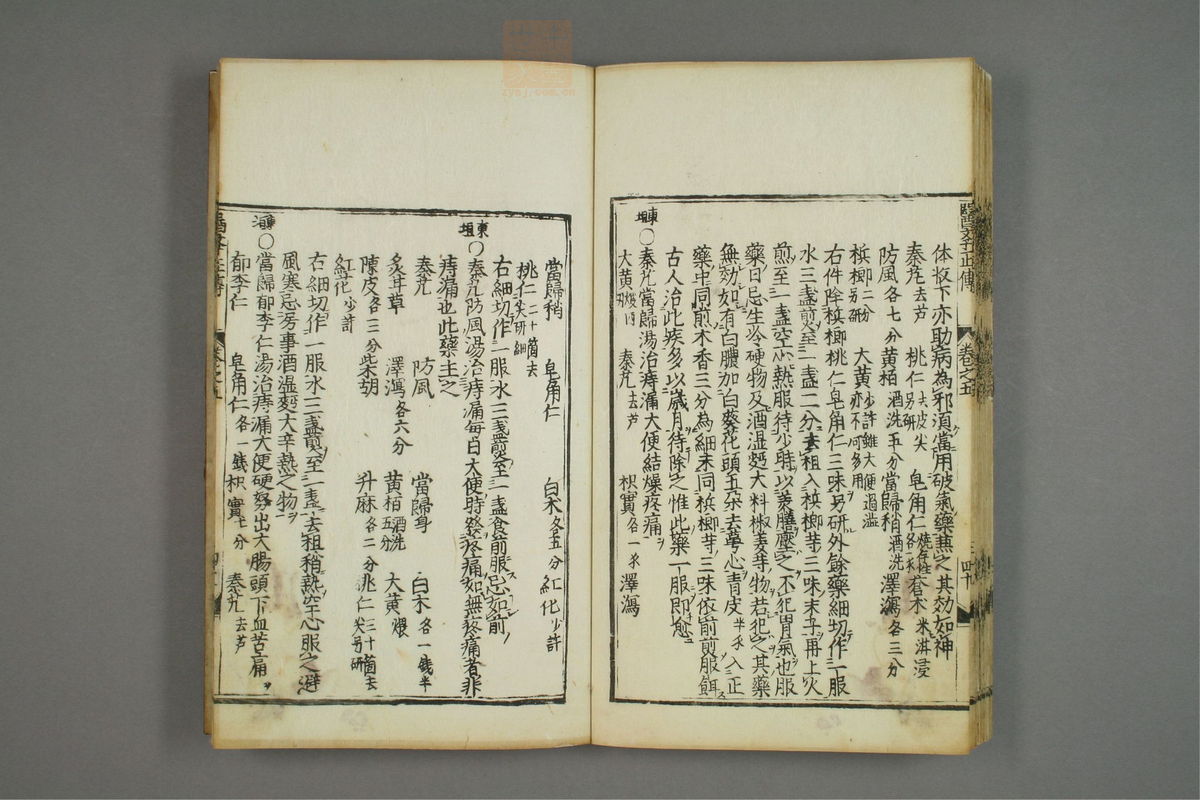 體收下亦助病為邪須當用破氣藥兼之其効如神
秦艽去芦 桃仁去皮尖另研 皂角仁燒存性各一𫝹 蒼朮米泔浸
防風各七分 黃栢酒洗五分 當歸稍酒洗 澤瀉各三分
梹榔二分另研 大黃少許雖大便過澁亦不可多用
右件除梹榔桃仁皂角仁三味另研外餘藥細切作一服
水三盞煎至一盞二分去柤入梹榔等三味末子再上火
煎至一盞空心熱服待少時以美膳壓之不犯胃氣也服
藥日忌生冷硬物及酒濕麪大料椒姜等物若犯之其藥
無効如有白膿加白葵花頭五朵去萼心青皮半𫝹入正
藥中同煎木香三分為細末同梹榔等三味依前煎服餌
古人治此疾多以歲月待除之惟此藥一服即愈
東垣○秦艽當歸湯治痔漏大便結燥疼痛
大黃煨四 秦艽去芦 枳實各一𫝹 澤瀉
當歸稍 皂角仁 白朮各五分 紅花少許
桃仁二十箇去尖研細
右細切作一服水三盞煎至一盞食前服忌如前
東垣○秦艽防風湯治痔漏每日大便時發疼痛如無疼痛者非
痔漏也此藥主之
秦艽 防風 當歸身 白朮各一錢半
炙甘草 澤瀉各六分 黃栢酒洗五分 大黃煨
陳皮各三分 柴胡 升麻各二分 桃仁三十箇去尖另研
紅花少許
右細切作一服水三盞煎至一盞去柤稍熱空心服之避
風寒忌房事酒濕麪大辛熱之物
東垣○當歸郁李仁湯治痔漏大便硬努出大腸頭下血苦痛
郁李仁 皂角仁各一錢 枳實七分 秦艽去芦